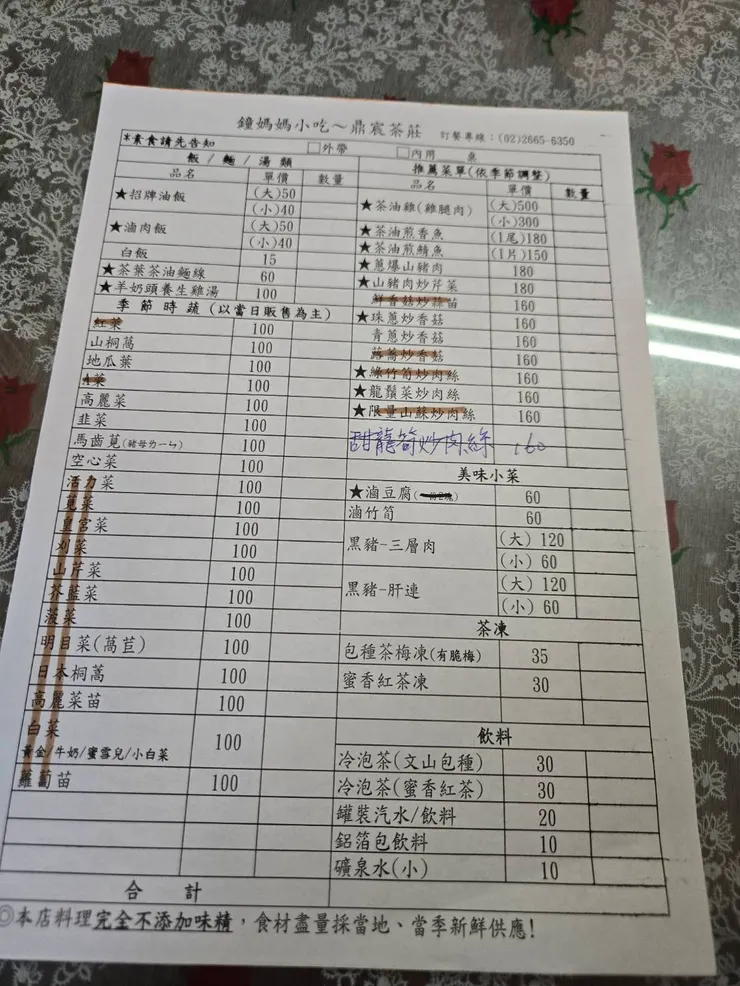 鐘媽媽小吃～鼎宸茶莊 訂餐專線：(02)2665-6350
*素食請先告知 □外帶 □內用 桌
飯/麵/湯類
品名 單價 數量
★招牌油飯 (大)50
(小)40
★滷肉飯 (大)50
(小)40
白飯 15
★茶葉茶油麵線 60
★羊奶頭養生雞湯 100
季節時蔬(以當日販售為主)
紅菜 100
山桐萵 100
地瓜葉 100
A菜 100
高麗菜 100
韭菜 100
馬齒莧(豬母ㄌㄧㄣ) 100
空心菜 100
活力菜 100
莧菜 100
皇宮菜 100
刈菜 100
山芹菜 100
芥藍菜 100
菠菜 100
明目菜(萵苣) 100
日本桐萵 100
高麗菜苗 100
白菜
黃金/牛奶/蜜雪兒/小白菜 100
蘿蔔苗 100
合計
推薦菜單(依季節調整)
品名 單價 數量
★茶油雞(雞腿肉) (大)500
(小)300
★茶油煎香魚 (1尾)180
★茶油煎鯖魚 (1片)150
★蔥爆山豬肉 180
★山豬肉炒芹菜 180
鮮香菇炒蒜苗 160
★珠蔥炒香菇 160
青蔥炒香菇 160
蒔蒿炒香菇 160
★綠竹筍炒肉絲 160
★龍鬚菜炒肉絲 160
★限量山蘇炒肉絲 160
甜龍筍炒肉絲 160
美味小菜
★滷豆腐 60
滷竹筍 60
黑豬-三層肉 (大) 120
(小) 60
黑豬-肝連 (大) 120
(小) 60
茶凍
包種茶梅凍(有脆梅) 35
蜜香紅茶凍 30
飲料
冷泡茶(文山包種) 30
冷泡茶(蜜香紅茶) 30
罐裝汽水/飲料 20
鋁箔包飲料 10
礦泉水(小) 10
◎本店料理完全不添加味精，食材盡量採當地、當季新鮮供應!